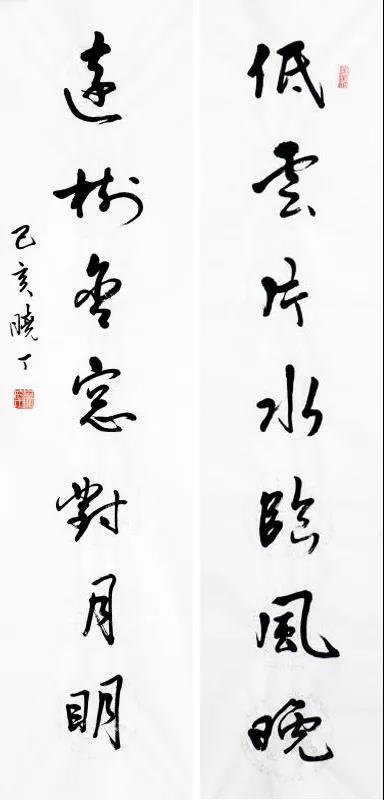 低雲片水臨風晚
遠樹窓對月明
己亥曉丁